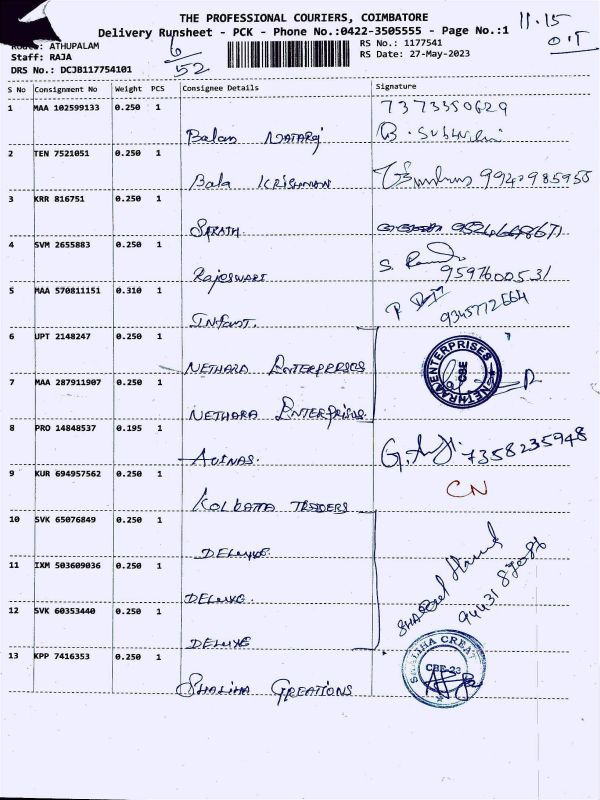 THE PROFESSIONAL COURIERS, COIMBATORE
11.15
Delivery Runsheet - PCK - Phone No.:0422-3505555 - Page No.:1
ATHUPALAM
6/52
RS No.: 1177541
Staff: RAJA
RS Date: 27-May-2023
DRS No.: DCJB117754101
S No Consignment No Weight PCS Consignee Details Signature
1 MAA 102599133 0.250 1 7373350629
Balan NATARAJ
2 TEN 7521051 0.250 1
Bala KRISHNAN
3 KRR 816751 0.250 1
SARATH.
4 SVM 2655883 0.250 1
RAJESWARI 9597600531
5 MAA 570811151 0.310 1
INFANT. 9345772664
6 UPT 2148247 0.250 1
NETHARA ENTERPRISES
7 MAA 287911907 0.250 1
NETHARA ENTERPRISES
NETHRAA ENTERPRISES
CBE
8 PRO 14848537 0.195 1
AVINAS. 7358235948
9 KUR 694957562 0.250 1
KOLKATTA TRADERS CN
10 SVK 65076849 0.250 1
DELUXE
11 IXM 503609036 0.250 1
DELUXE.
12 SVK 60353440 0.250 1
DELUXE
13 KPP 7416353 0.250 1
SHALIHA CREATIONS
SHALIHA CREAT
CBE-23